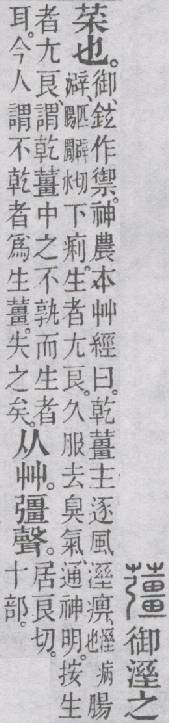 䕬御溼之
菜也。
御、鉉作禦。神農本艸經曰。乾薑主逐風溼痹、腸
澼、下痢。生者尤良。久服去臭氣通神明。按生
者尤良、謂乾薑中之不孰而生者
耳。今人謂不乾者爲生薑。失之矣。
从艸。彊聲。
居良切。
十部。